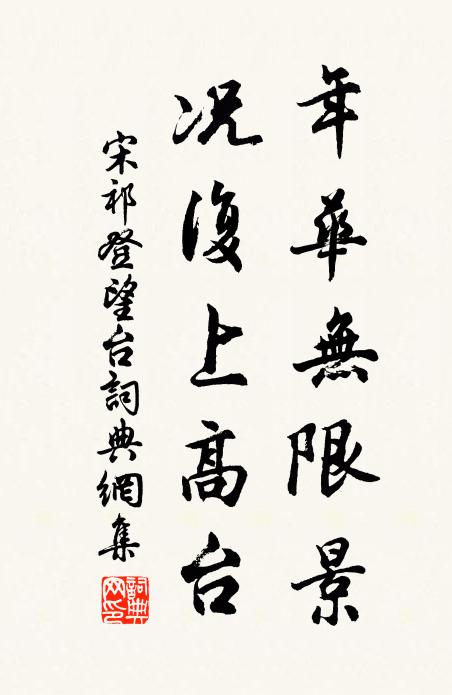 年華無限景
况復上高台
宋祁登望台詞典網集
詞典网印